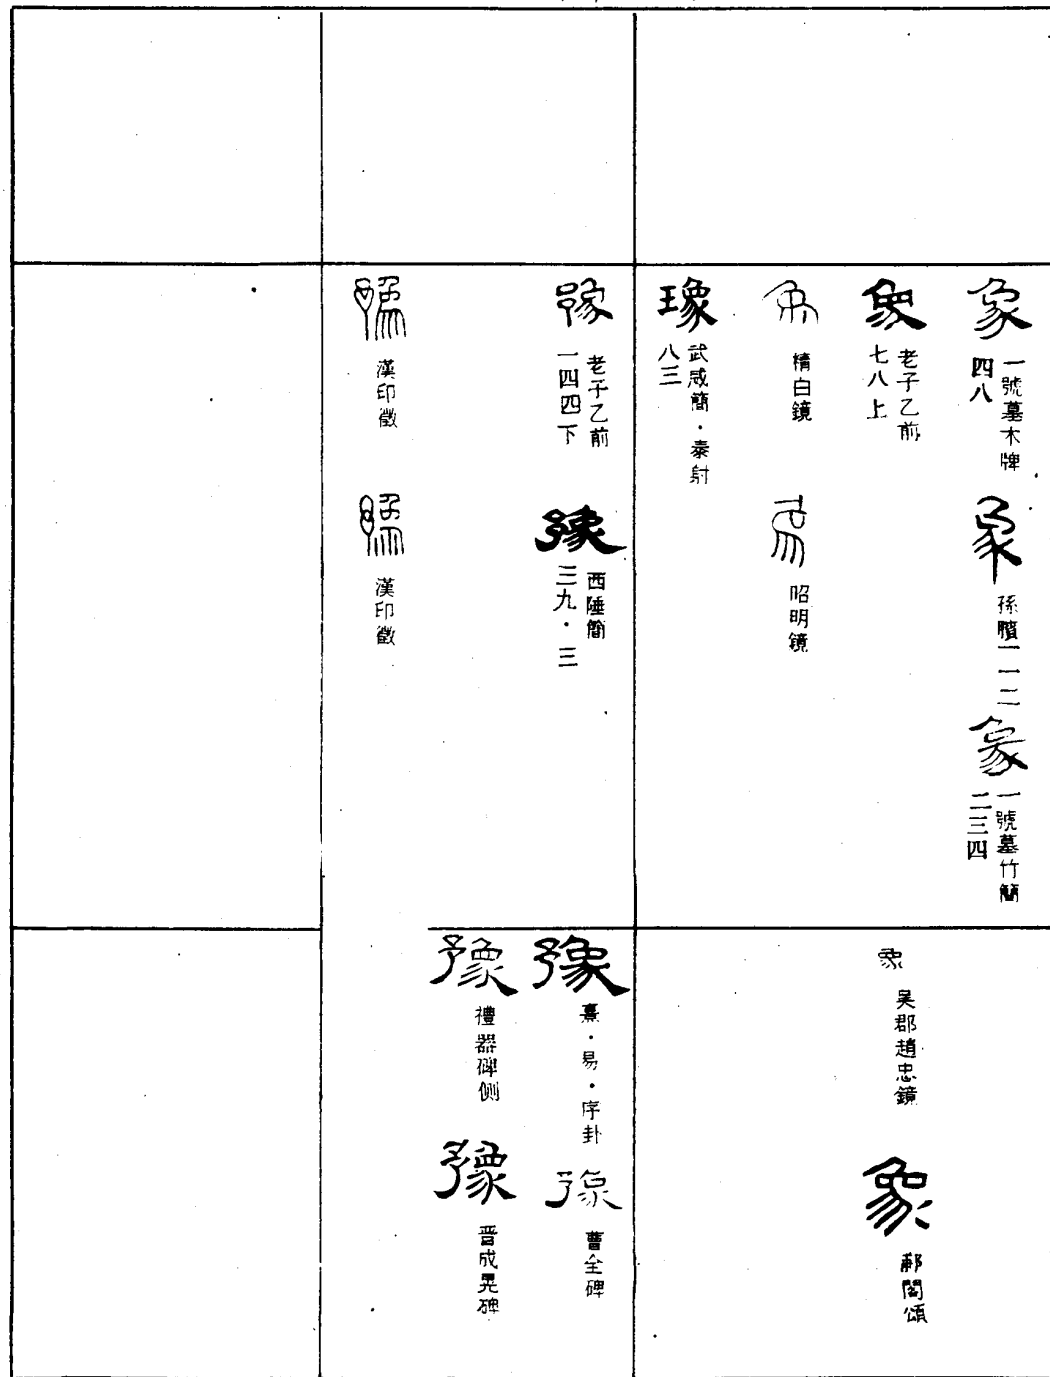 象
一號墓木牌
四八
象
孫臏一一二
象
一號墓竹簡
二三四
象
老子乙前
七八上
象
精白鏡
象
昭明鏡
瑑
武威簡·泰射
八三
豫
老子乙前
一四四下
豫
西陲簡
三九·三
豫
漢印徵
豫
漢印徵
象
吴郡趙忠鏡
象
郙閣頌
豫
熹·易·序卦
豫
曹全碑
豫
禮器碑側
豫
晋成晃碑